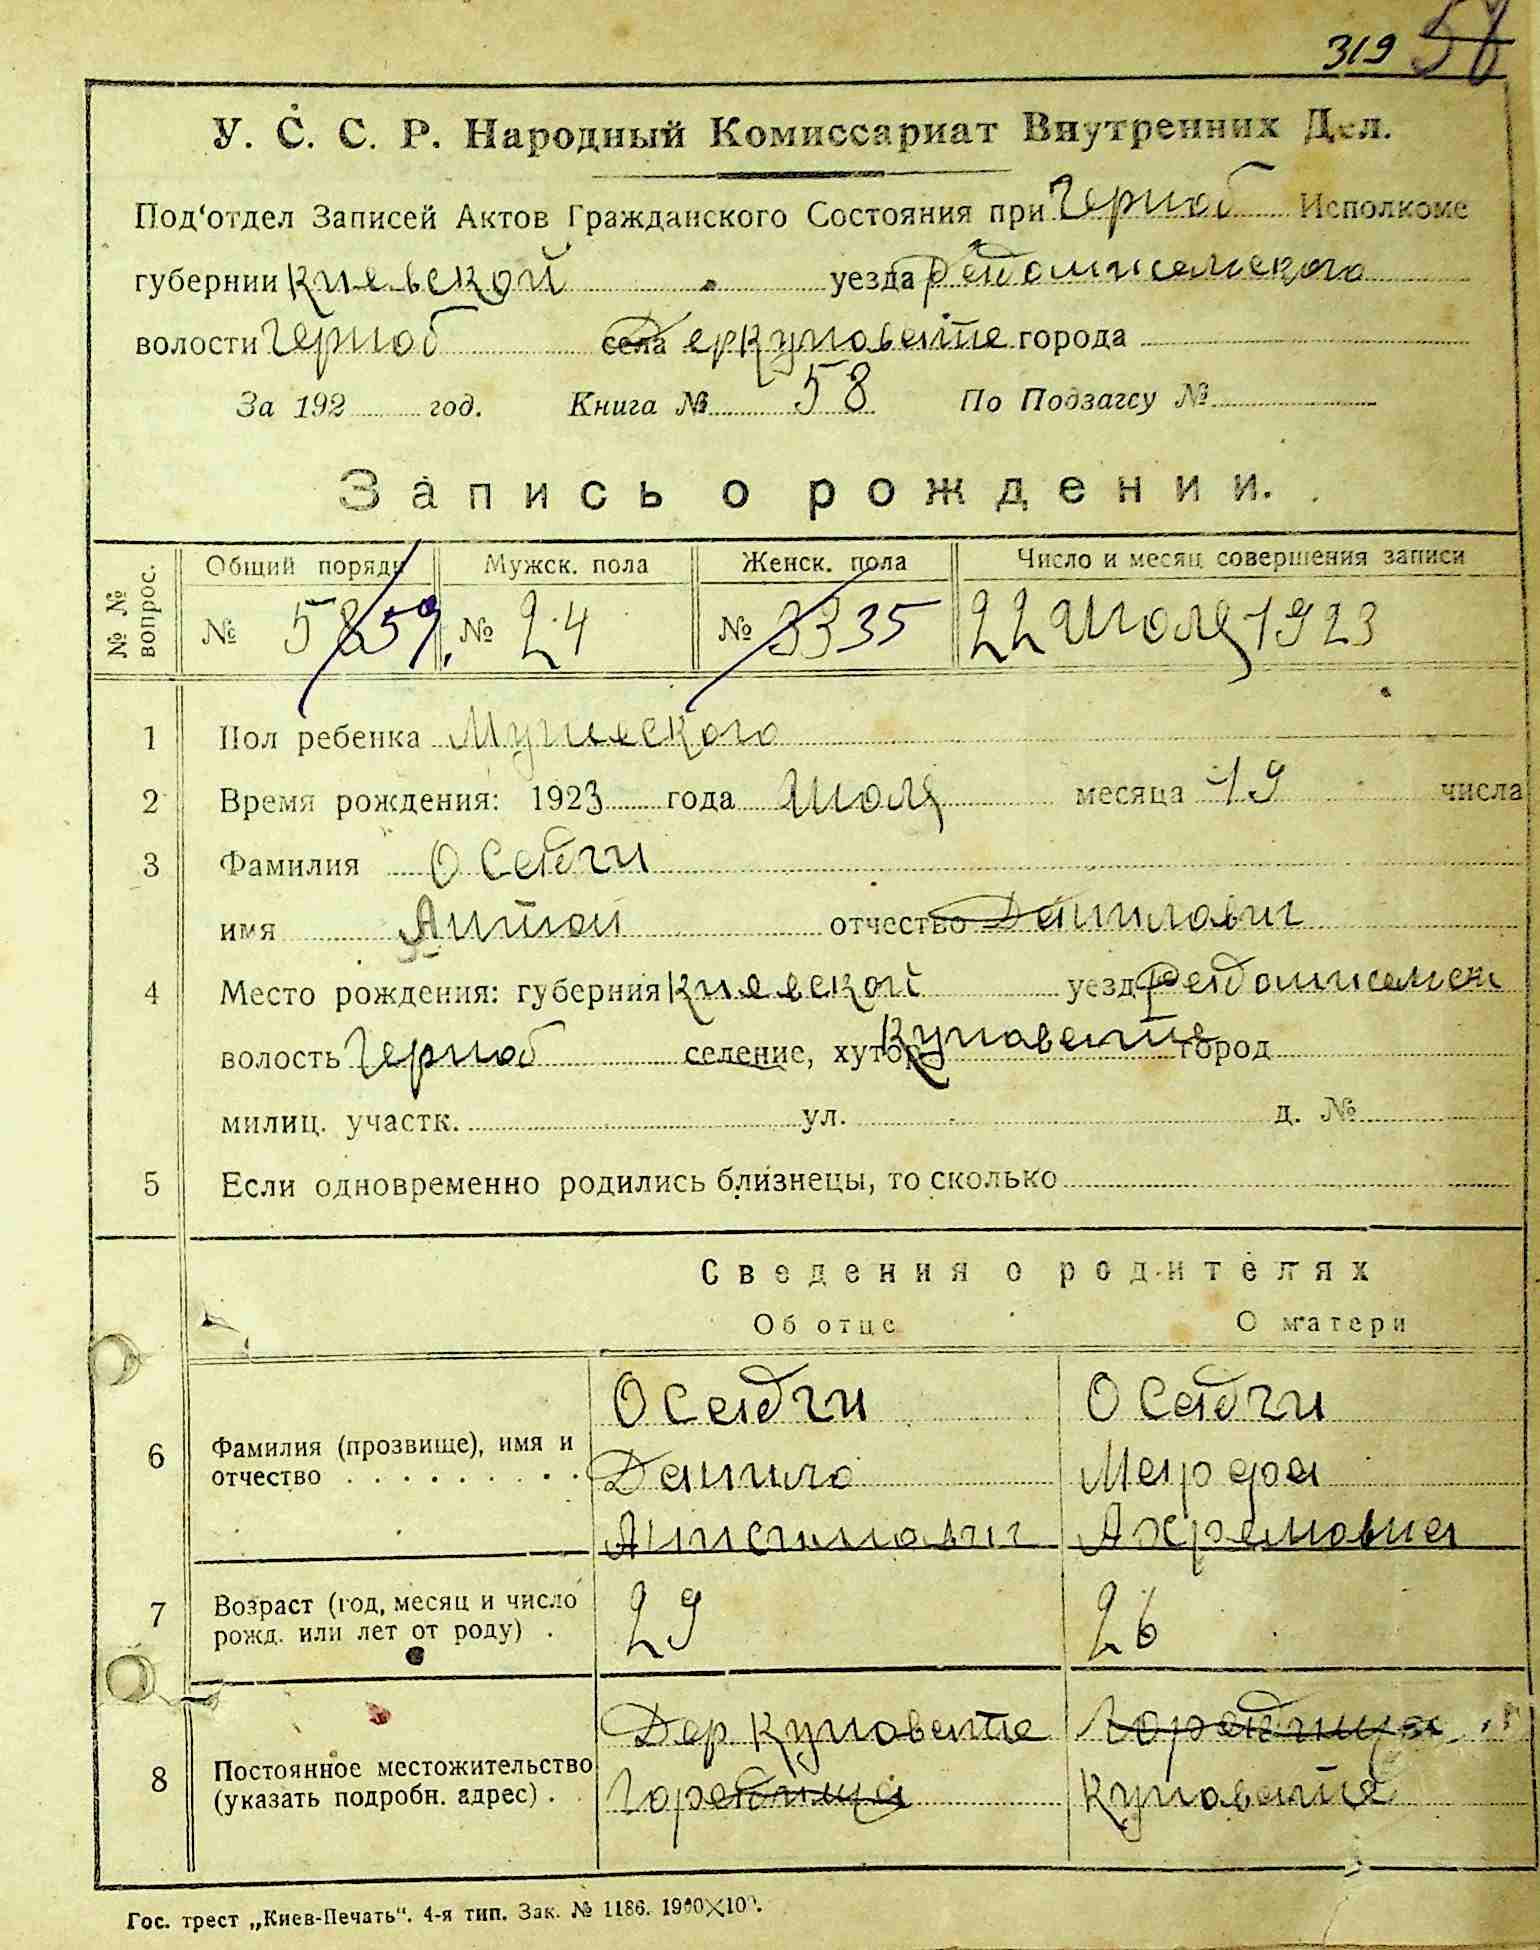 319 58
У. С. С. Р. Народный Комиссариат Внутренних Дел.
Под'отдел Записей Актов Гражданского Состояния при Черноб Исполкоме
губернии Киевской уезда Радомысельского
волости Черноб села Дер Куповатте города
За 192 год. Книга № 58 По Подзагсу №
Запись о рождении.
№ № вопрос. Общий поряди Мужск. пола Женск. пола Число и месяц совершения записи
№ 58 59. № 24 № 33 35 22 Июля 1923
1 Пол ребенка Мужеского
2 Время рождения: 1923 года Июля месяца 19 числа
3 Фамилия Осадчи
имя Антон отчество Данилович
4 Место рождения: губерния Киевской уезд
волость Черноб селение, хутор Куповатте город
милиц. участк. ул. д. №
5 Если одновременно родились близнецы, то сколько
Сведения о родителях
Об отце О матери
6 Фамилия (прозвище), имя и отчество Осадчи Осадчи
Данило Марфа
Ахремовна
7 Возраст (год, месяц и число рожд. или лет от роду) . 29 26
8 Постоянное местожительство (указать подробн. адрес) . . Дер Куповатте
Куповатте
Гос. трест „Киев-Печать“. 4-я тип. Зак. № 1186. 1900×100.